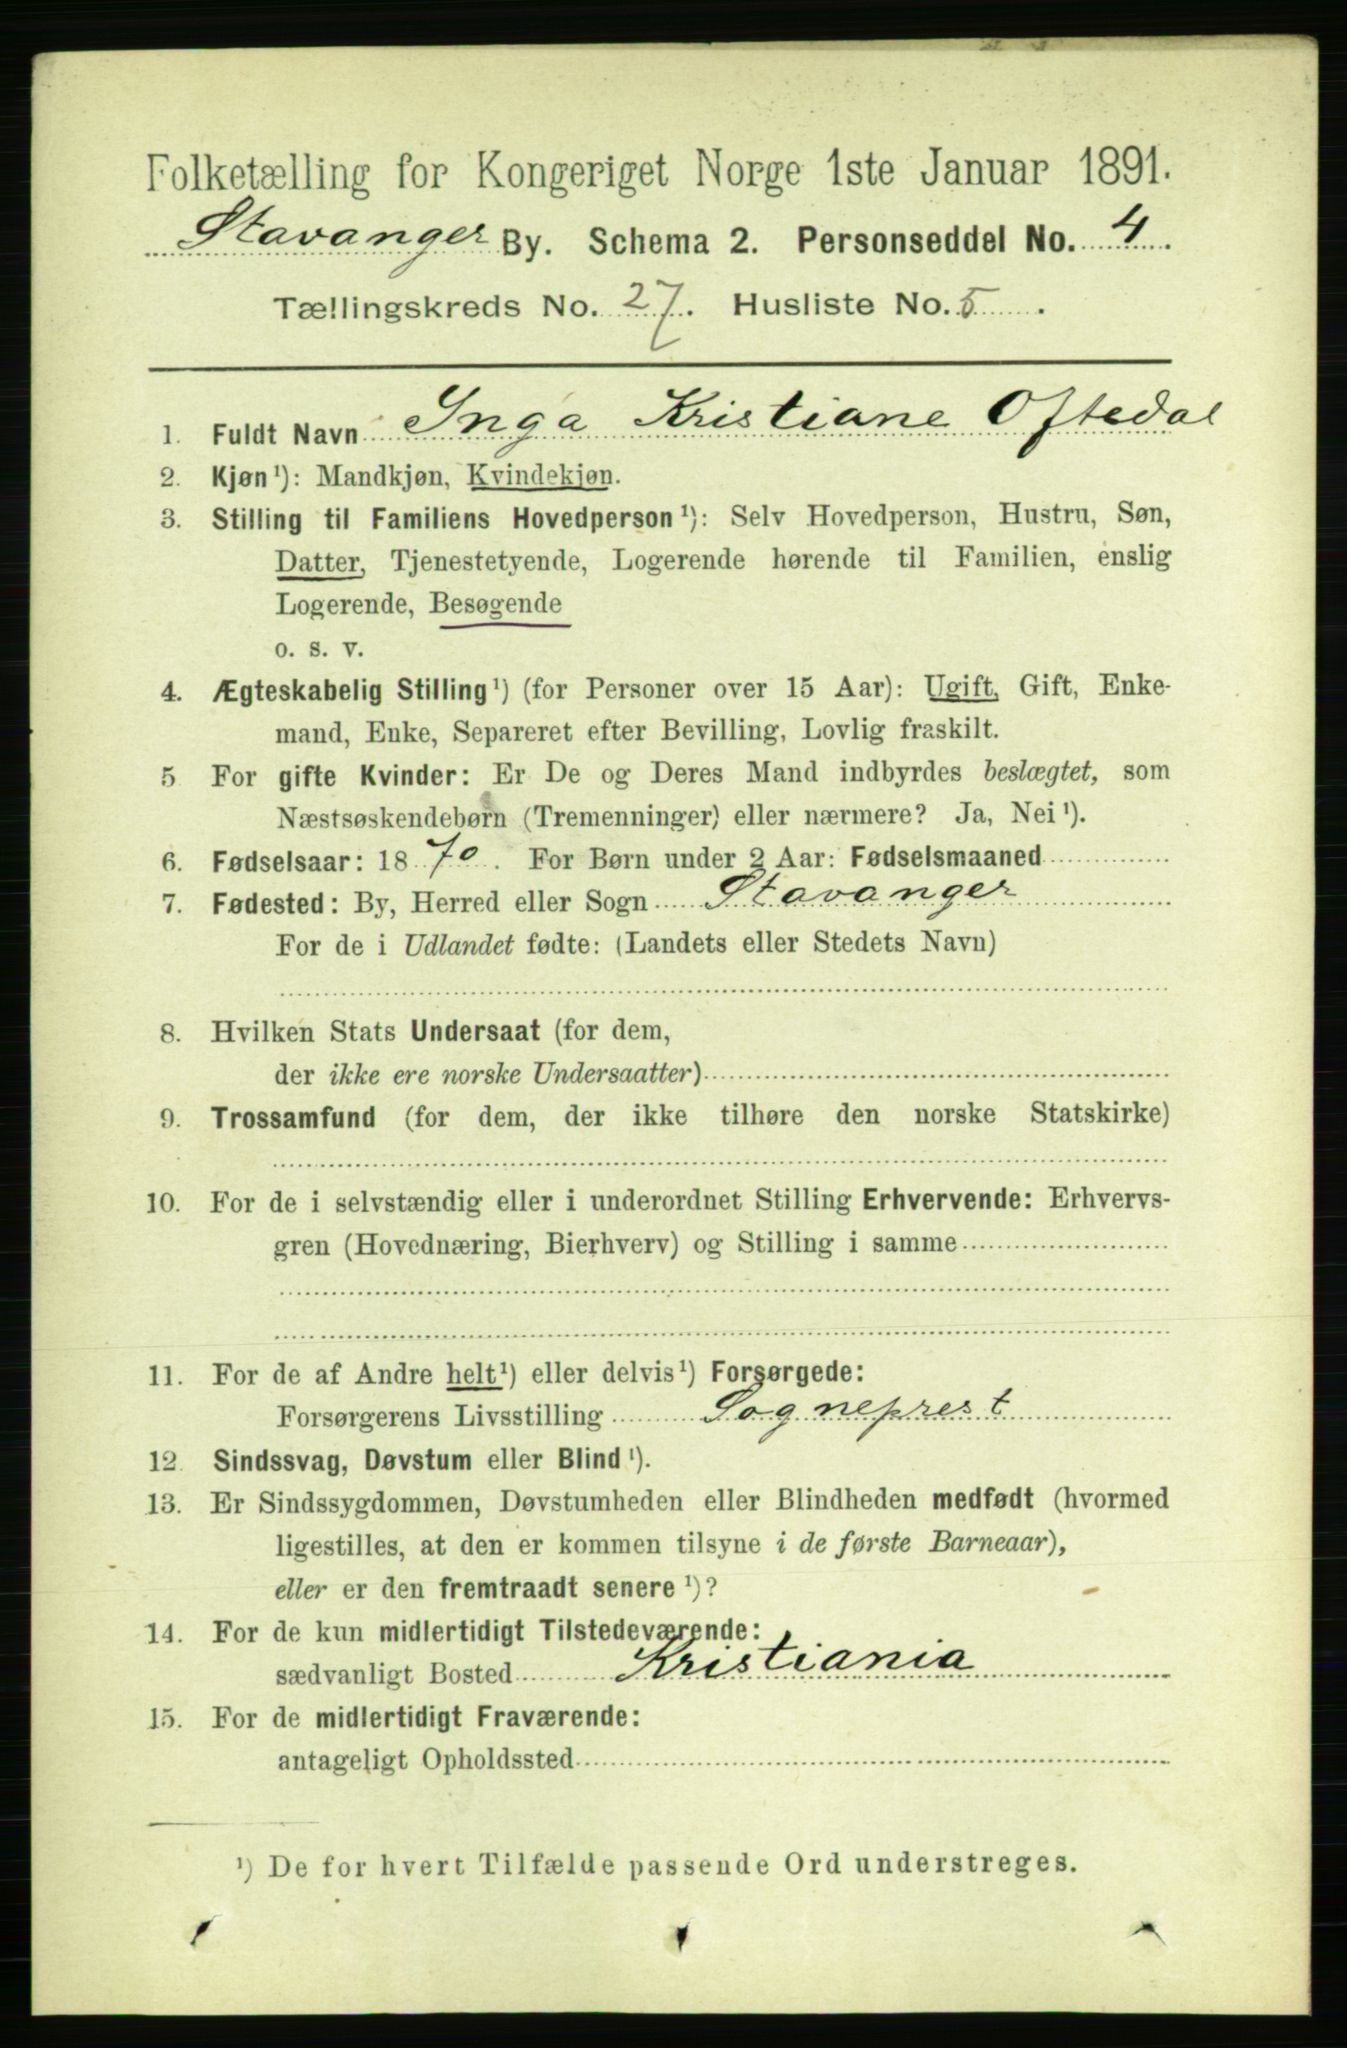 Folketælling for Kongeriget Norge 1ste Januar 1891.
Stavanger By. Schema 2. Personseddel No. 4.
Tællingskreds No. 27. Husliste No. 5.
1. Fuldt Navn Inga Kristiane Oftedal
2. Kjøn¹): Mandkjøn, Kvindekjøn.
3. Stilling til Familiens Hovedperson¹): Selv Hovedperson, Hustru, Søn,
Datter, Tjenestetyende, Logerende hørende til Familien, enslig
Logerende, Besøgende
o. s. v.
4. Ægteskabelig Stilling¹) (for Personer over 15 Aar): Ugift, Gift, Enke-
mand, Enke, Separeret efter Bevilling, Lovlig fraskilt.
5 For gifte Kvinder: Er De og Deres Mand indbyrdes beslægtet, som
Næstsøskendebørn (Tremenninger) eller nærmere? Ja, Nei¹).
6. Fødselsaar: 1870. For Børn under 2 Aar: Fødselsmaaned
7. Fødested: By, Herred eller Sogn Stavanger
For de i Udlandet fødte: (Landets eller Stedets Navn)
8. Hvilken Stats Undersaat (for dem,
der ikke ere norske Undersaatter)
9. Trossamfund (for dem, der ikke tilhøre den norske Statskirke)
10. For de i selvstændig eller i underordnet Stilling Erhvervende: Erhvervs-
gren (Hovednæring, Bierhverv) og Stilling i samme
11. For de af Andre helt¹) eller delvis¹) Forsørgede:
Forsørgerens Livsstilling Sogneprest
12. Sindssvag, Døvstum eller Blind¹).
13. Er Sindssygdommen, Døvstumheden eller Blindheden medfødt (hvormed
ligestilles, at den er kommen tilsyne i de første Barneaar),
eller er den fremtraadt senere¹)?
14. For de kun midlertidigt Tilstedeværende:
sædvanligt Bosted Kristiania
15. For de midlertidigt Fraværende:
antageligt Opholdssted
¹) De for hvert Tilfælde passende Ord understreges.